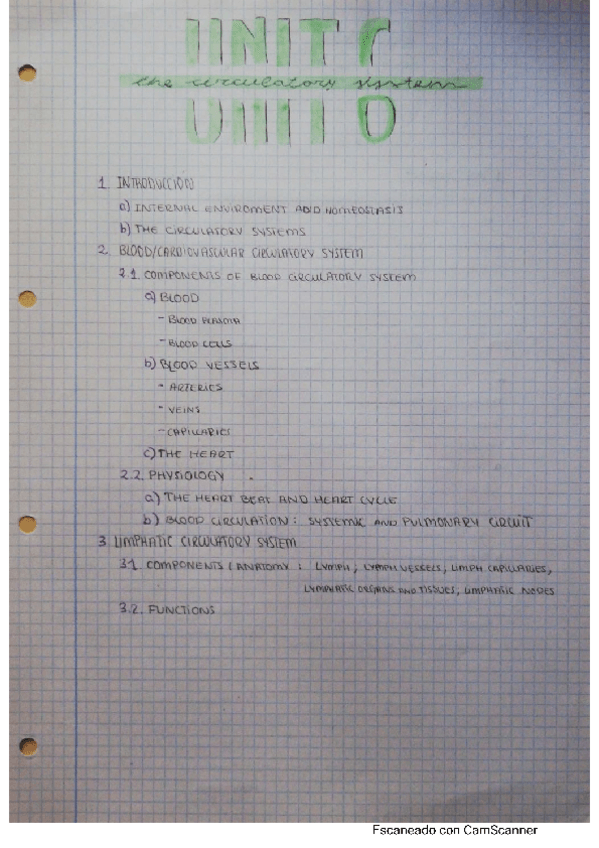 UNIT 6
the circulatory sistem
1. INTRODUCCIÓN
a) INTERNAL ENVIROMENT AND HOMEOSTASIS
b) THE CIRCULATORY SYSTEMS
2. BLOOD/CARDIOVASCULAR CIRCULATORY SYSTEM
2.1. COMPONENTS OF BLOOD CIRCULATORY SYSTEM
a) BLOOD
- BLOOD PLASMA
- BLOOD CELLS
b) BLOOD VESSELS
- ARTERIES
- VEINS
- CAPILLARIES
c) THE HEART
2.2. PHYSIOLOGY
a) THE HEART BEAT AND HEART CYCLE
b) BLOOD CIRCULATION: SYSTEMIC AND PULMONARY CIRCUIT
3 LIMPHATIC CIRCULATORY SYSTEM
3.1. COMPONENTS / ANATOMY: LYMPH, LYMPH VESSELS, LIMPH CAPILLARIES,
LYMPHATIC ORGANS AND TISSUES, LIMPHATIC NODES
3.2. FUNCTIONS
Escaneado con CamScanner